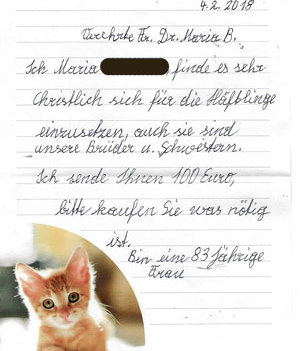 4.2.2018
Verehrte Fr. Dr. Maria B.
Ich Maria finde es sehr
Christlich sich für die Häftlinge
einzusetzen, auch sie sind
unsere Brüder u. Schwestern.
Ich sende Ihnen 100 Euro,
bitte kaufen Sie was nötig
ist.
Bin eine 83 jährige
Frau